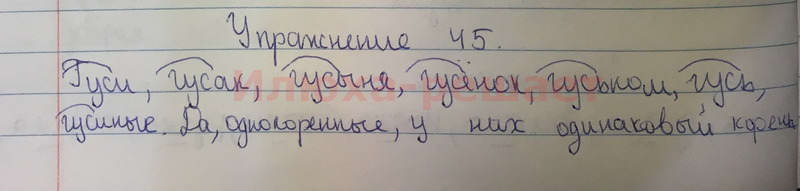 Упражнение 45.
Гуси, гусак, гусыня, гусёнок, гуськом, гусь,
гусиные. Да, однокоренные, у них одинаковый корень
Илюха-решает